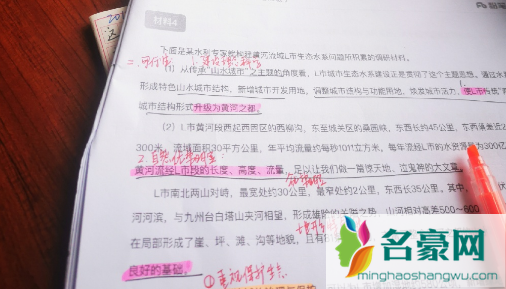 材料4
下面是某水利专家就构建黄河流域L市生态水系问题所积累的调研材料。
(1)从传承“山水城市”之主题的角度看,L市城市生态水系建设正是贯彻了这个主题思想。通过水
形成特色山水城市结构、新增城市开发用地、调整城市结构与功能用地、焕发城市活力,使L市传统
城市结构形式升级为黄河之都。
(2)L市黄河段西起西固区的西柳沟,东至城关区的桑园峡,东西长约45公里,
300米,流域面积30平方公里,年平均流量约每秒101立方米,每年流经L市的水资源量为300亿
2.自然优势明显
黄河流经L市段的长度、高度、流量,足以让我们做一篇惊天地、泣鬼神的大文章。
L市南北两山对峙,最宽处约30公里,最窄处约2公里,东西长35公里,其中,
河河滨,与九州台白塔山夹河相望,形成雄险的关联之势,山河相对高差500~600
在局部形成了崖、坪、滩、沟等地貌,且有
良好的基础。
①重视保护生态
名豪网
minghaoshangwu.com